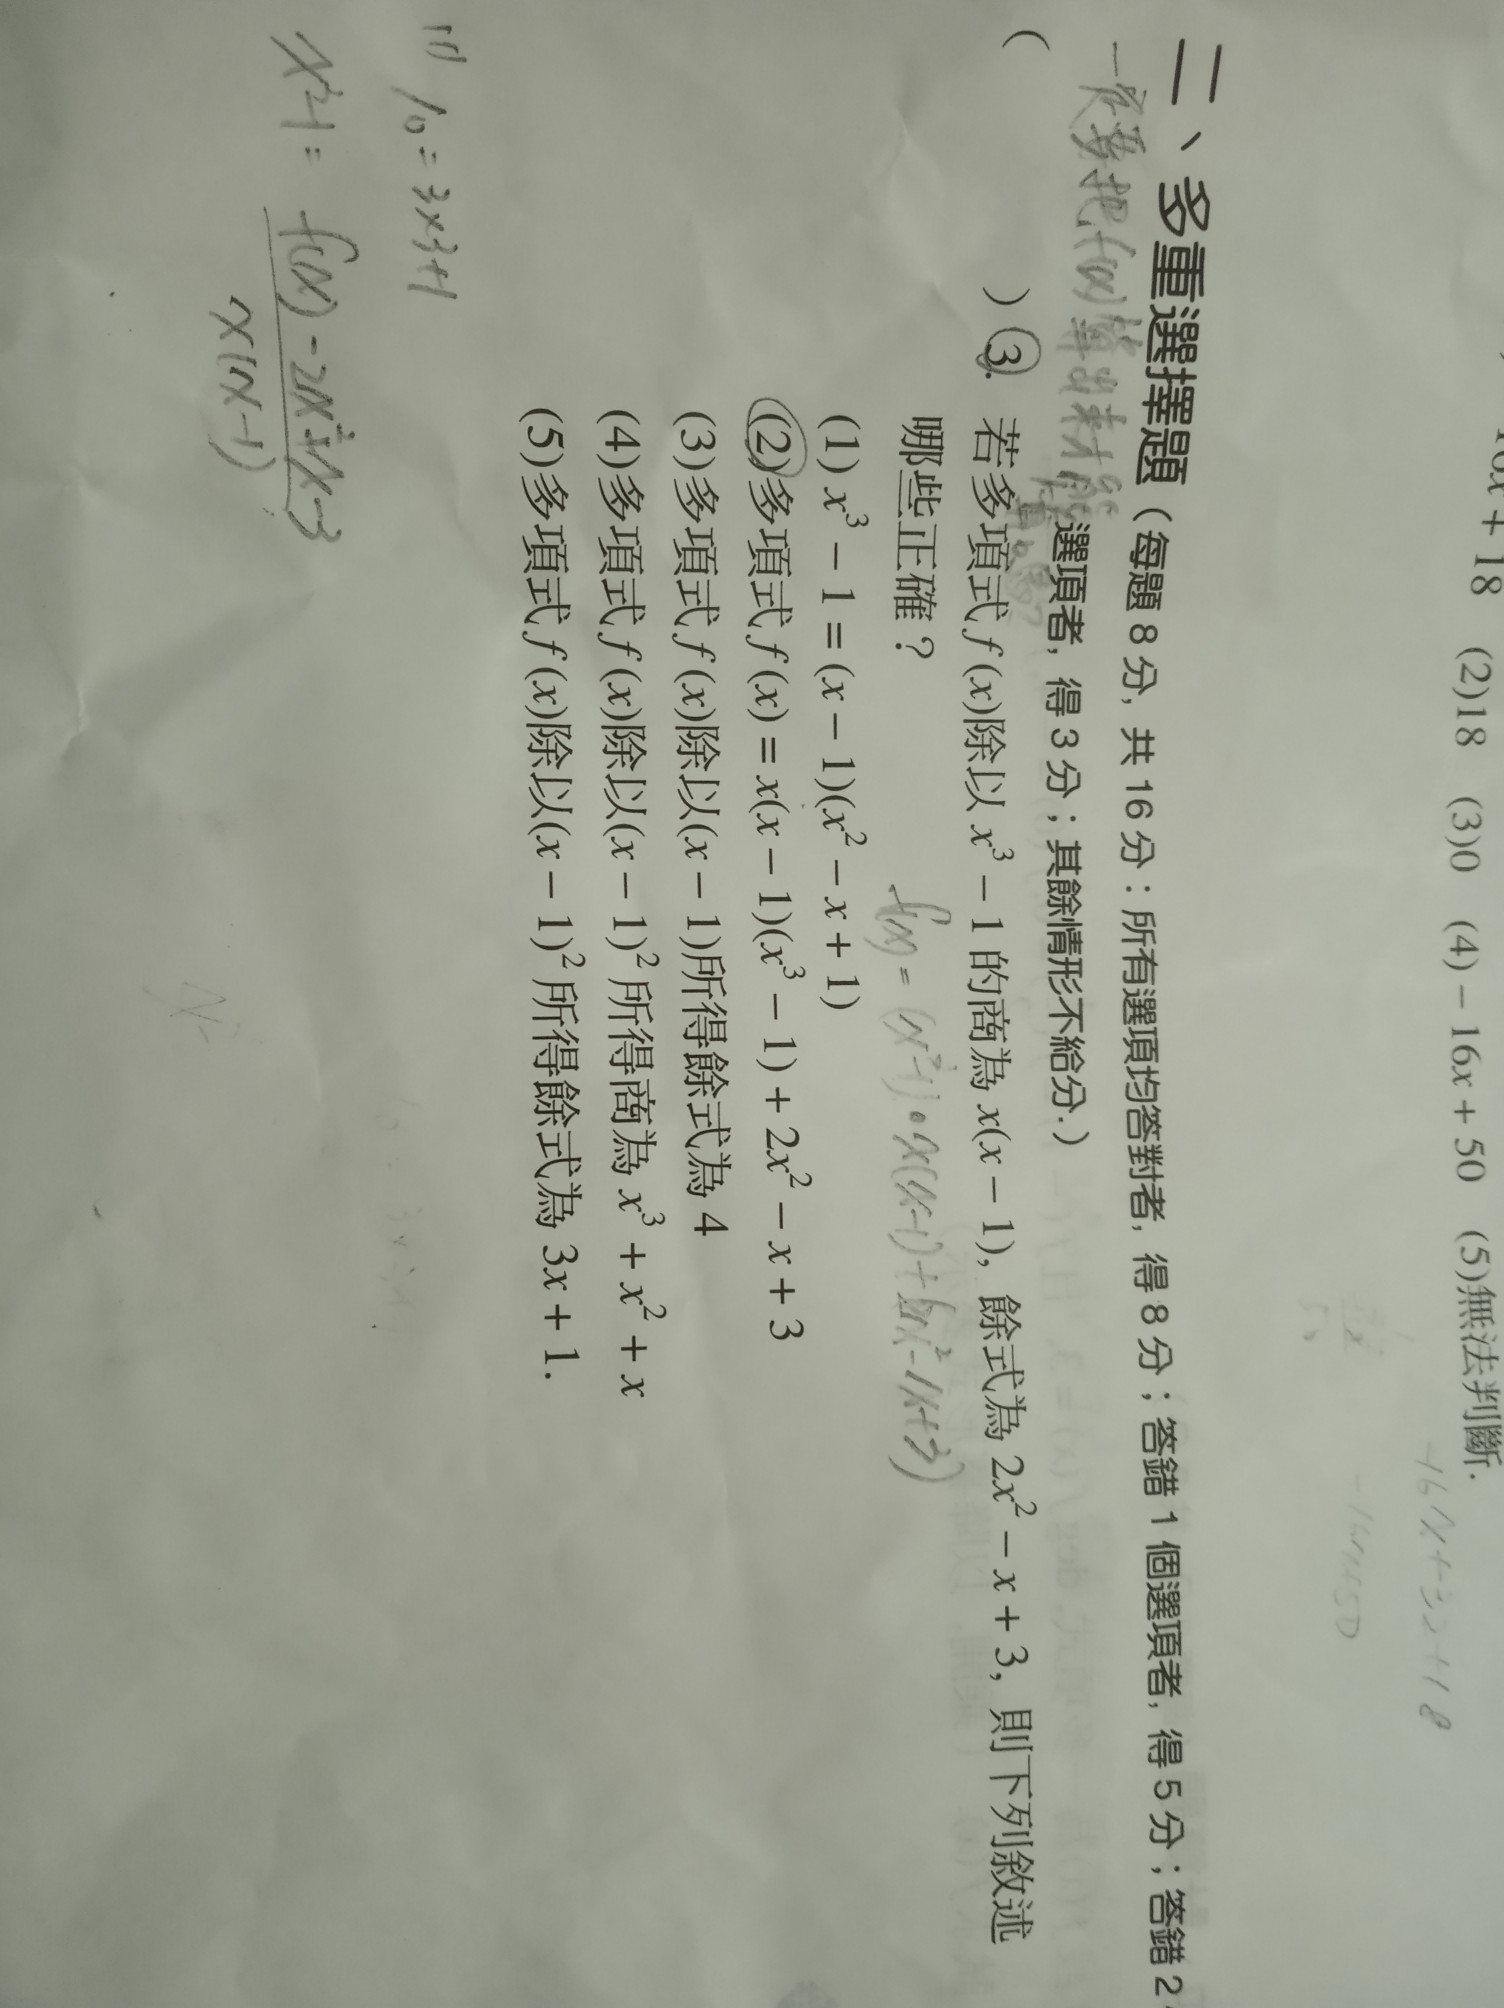 + 18 (2)18 (3)0 (4) − 16x + 50 (5)無法判斷.
-16x+32+18
-16x+50
二、多重選擇題(每題 8 分, 共 16 分:所有選項均答對者, 得 8 分;答錯 1 個選項者, 得 5 分;答錯 2
一定要把f(x)算出來才能
選項者, 得 3 分;其餘情形不給分.)
( )3. 若多項式 f (x)除以 x³ − 1 的商為 x(x − 1), 餘式為 2x² − x + 3, 則下列敘述
哪些正確?
f(x) = (x³-1)·x(x-1)+
(1) x³ − 1 = (x − 1)(x² − x + 1)
(2)多項式 f (x) = x(x − 1)(x³ − 1) + 2x² − x + 3
(3)多項式 f (x)除以(x − 1)所得餘式為 4
(4)多項式 f (x)除以(x − 1)² 所得商為 x³ + x² + x
(5)多項式 f (x)除以(x − 1)² 所得餘式為 3x + 1.
10 = 3×3+1
x³-1 = f(x) - 2x²+x-3
x(x-1)